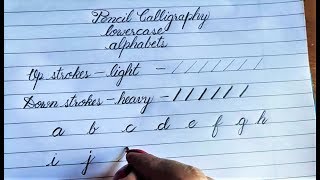 Pencil Calligraphy
lowercase
alphabets
Up strokes - light -
Down strokes - heavy -
a b c d e f g h
i j